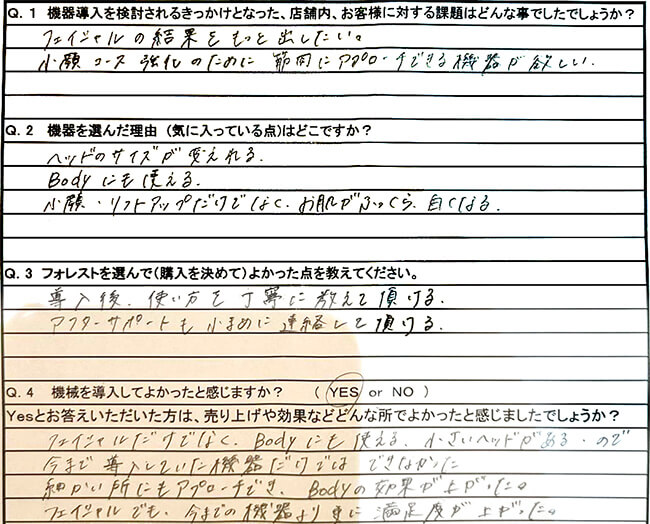 Q. 1 機器導入を検討されるきっかけとなった、店舗内、お客様に対する課題はどんな事でしたでしょうか?
フェイシャルの結果をもっと出したい。
小顔コース強化のために筋肉にアプローチできる機器が欲しい.
Q. 2 機器を選んだ理由 (気に入っている点)はどこですか?
ヘッドのサイズが変えれる.
Bodyにも使える.
小顔・リフトアップだけでなく、お肌がふっくら、白くなる.
Q. 3 フォレストを選んで(購入を決めて)よかった点を教えてください。
導入後、使い方を丁寧に教えて頂ける.
アフターサポートも小まめに連絡して頂ける.
Q. 4 機械を導入してよかったと感じますか? ( YES or NO )
Yesとお答えいただいた方は、売り上げや効果などどんな所でよかったと感じましたでしょうか?
フェイシャルだけでなく、Bodyにも使える、小さいヘッドがある・ので
今まで導入していた機器だけではできなかった
細かい所にもアプローチでき、Bodyの効果が上がった。
フェイシャルでも、今までの機器より更に満足度が上がった。